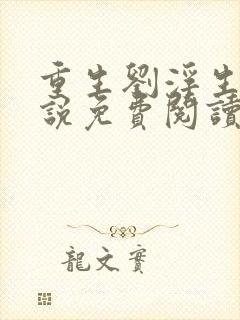 重生劉淫生
說免費閱讀
龍文實